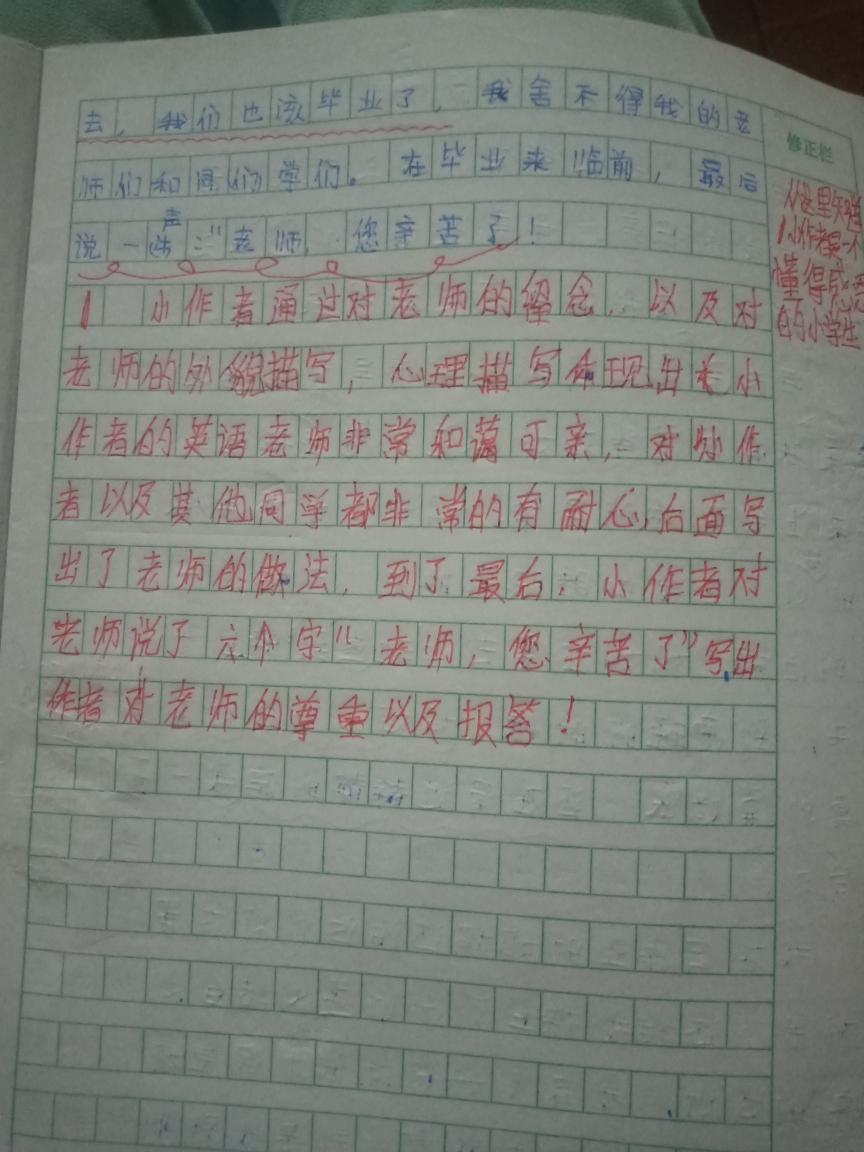 去，我们也该毕业了，我舍不得我的老
师们和同们学们。在毕业来临前，最后
说一声："老师，您辛苦了！
修正栏
从这里知道
小作者是一个
懂得感恩
的小学生
小作者通过对老师的留念，以及对
老师的外貌描写，心理描写体现出小
作者的英语老师非常和蔼可亲，对小作
者以及其他同学都非常的有耐心，后面写
出了老师的做法，到了最后：小作者对
老师说了六个字"老师，您辛苦了"写出
作者对老师的尊重以及报答！